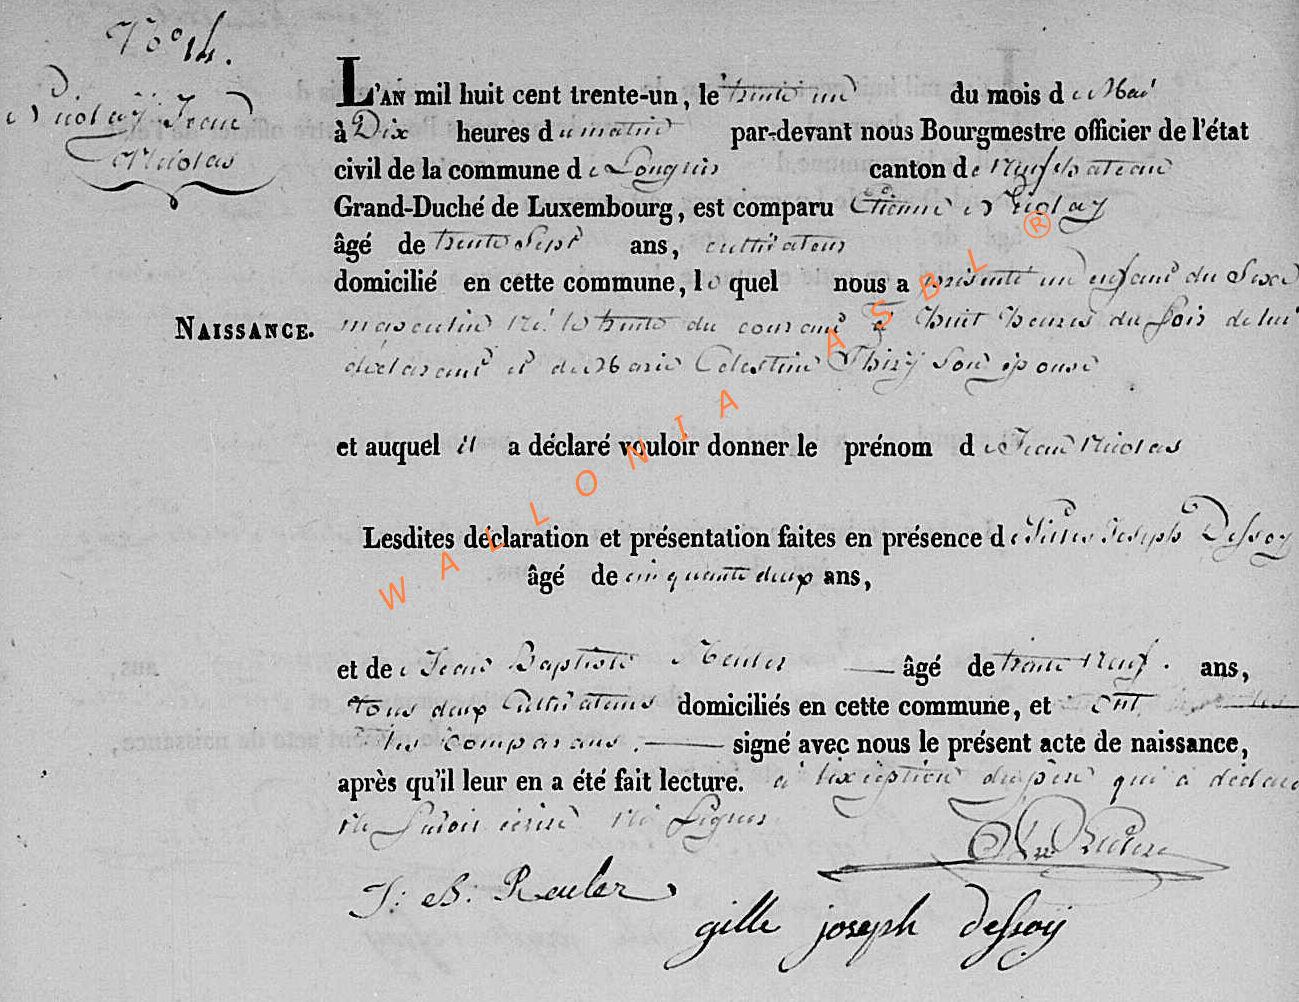 N° 14.
Nicolay Jean
Nicolas
L'AN mil huit cent trente-un, le trente un du mois de Mai
à Dix heures du matin par-devant nous Bourgmestre officier de l'état
civil de la commune de Longlier canton de Neufchateau
Grand-Duché de Luxembourg, est comparu Etienne Nicolay
âgé de trente Sept ans, cultivateur
domicilié en cette commune, lequel nous a présenté un enfant du Sexe
NAISSANCE.
masculin Né le trente du courant à huit heures du Soir de lui
déclarant et de Marie Celestine Thiry Son épouse
et auquel il a déclaré vouloir donner le prénom de Jean Nicolas
Lesdites déclaration et présentation faites en présence de Joseph Dessoy
âgé de cinquante deux ans,
et de Jean Baptiste Reuler âgé de trente Neuf. ans,
tous deux Cultivateurs domiciliés en cette commune, et ont les
comparans. signé avec nous le présent acte de naissance,
après qu'il leur en a été fait lecture. à l'exception du père qui a déclaré
Ne Savoir écrire Ni Signer.
J: B: Reuler
gille joseph dessoy
WALLONIA ASBL ®